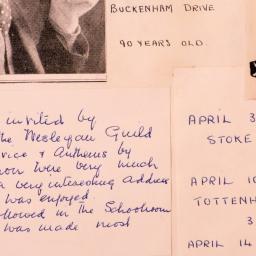 BUCKENHAM DRIVE
90 YEARS OLD.
invited by
the Wesleyan Guild
vice & Anthems by
were very much
a very interesting address
was enjoyed.
llowed in The Schoolroom
was made most
APRIL 3
STOKE
APRIL 10
TOTTENH
3
APRIL 14